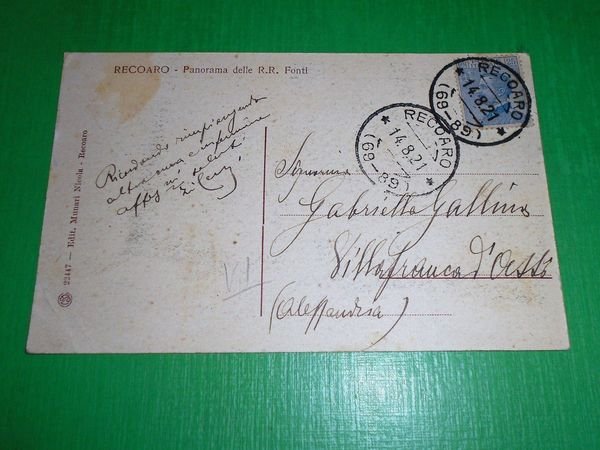 RECOARO - Panorama delle R.R. Fonti
RECOARO
14.8.21
(69-89)
RECOARO
14.8.21
(69-89)
Ricordando rimpiangendo
altra
saluti
Gabrietta Gallina
Villafranca d'Asti
(Alessandria)
VI
22447 — Edit. Munari Nicola - Recoaro